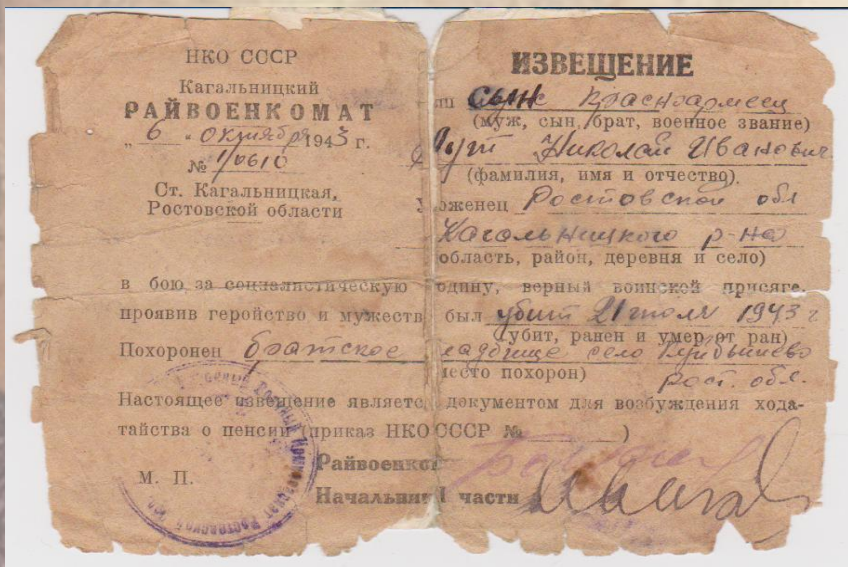 НКО СССР
Кагальницкий
РАЙВОЕНКОМАТ
„6“ октября 1943 г.
№ 1/0610
Ст. Кагальницкая,
Ростовской области
ИЗВЕЩЕНИЕ
сын Красноармеец
(муж, сын, брат, военное звание)
Николай Иванович
(фамилия, имя и отчество)
Ростовской обл
Кагальницкого р-на
область, район, деревня и село)
в бою за социалистическую одину, верный воинской присяге,
проявив геройство и мужеств был убит 21 июля 1943 г
(убит, ранен и умер от ран)
Похоронен братское ладбище село Куйбышево
место похорон) рост. обл.
Настоящее извещение являетс документом для возбуждения хода-
тайства о пенсии (приказ НКО СССР № )
Райвоенко
М. П.
Начальник части